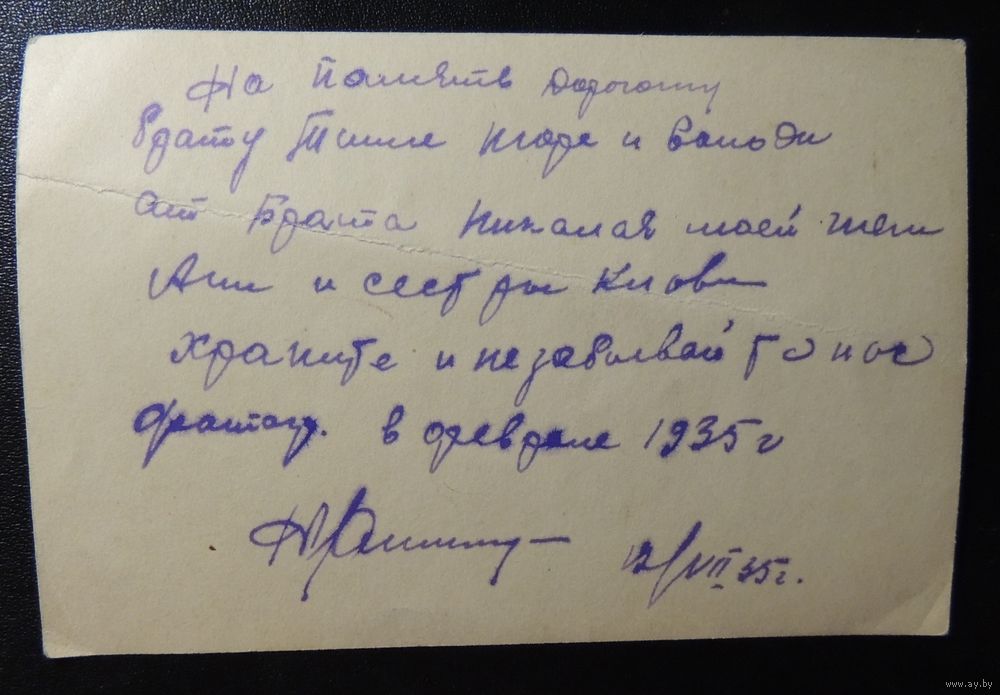 На память дорогому
брату Тиме Нюре и Володи
от Брата Николая моей жены
Ани и сестры Клавы
храните и незабывайте нас
фотогр. в феврале 1935 г
12/VII 35 г.
www.ay.by